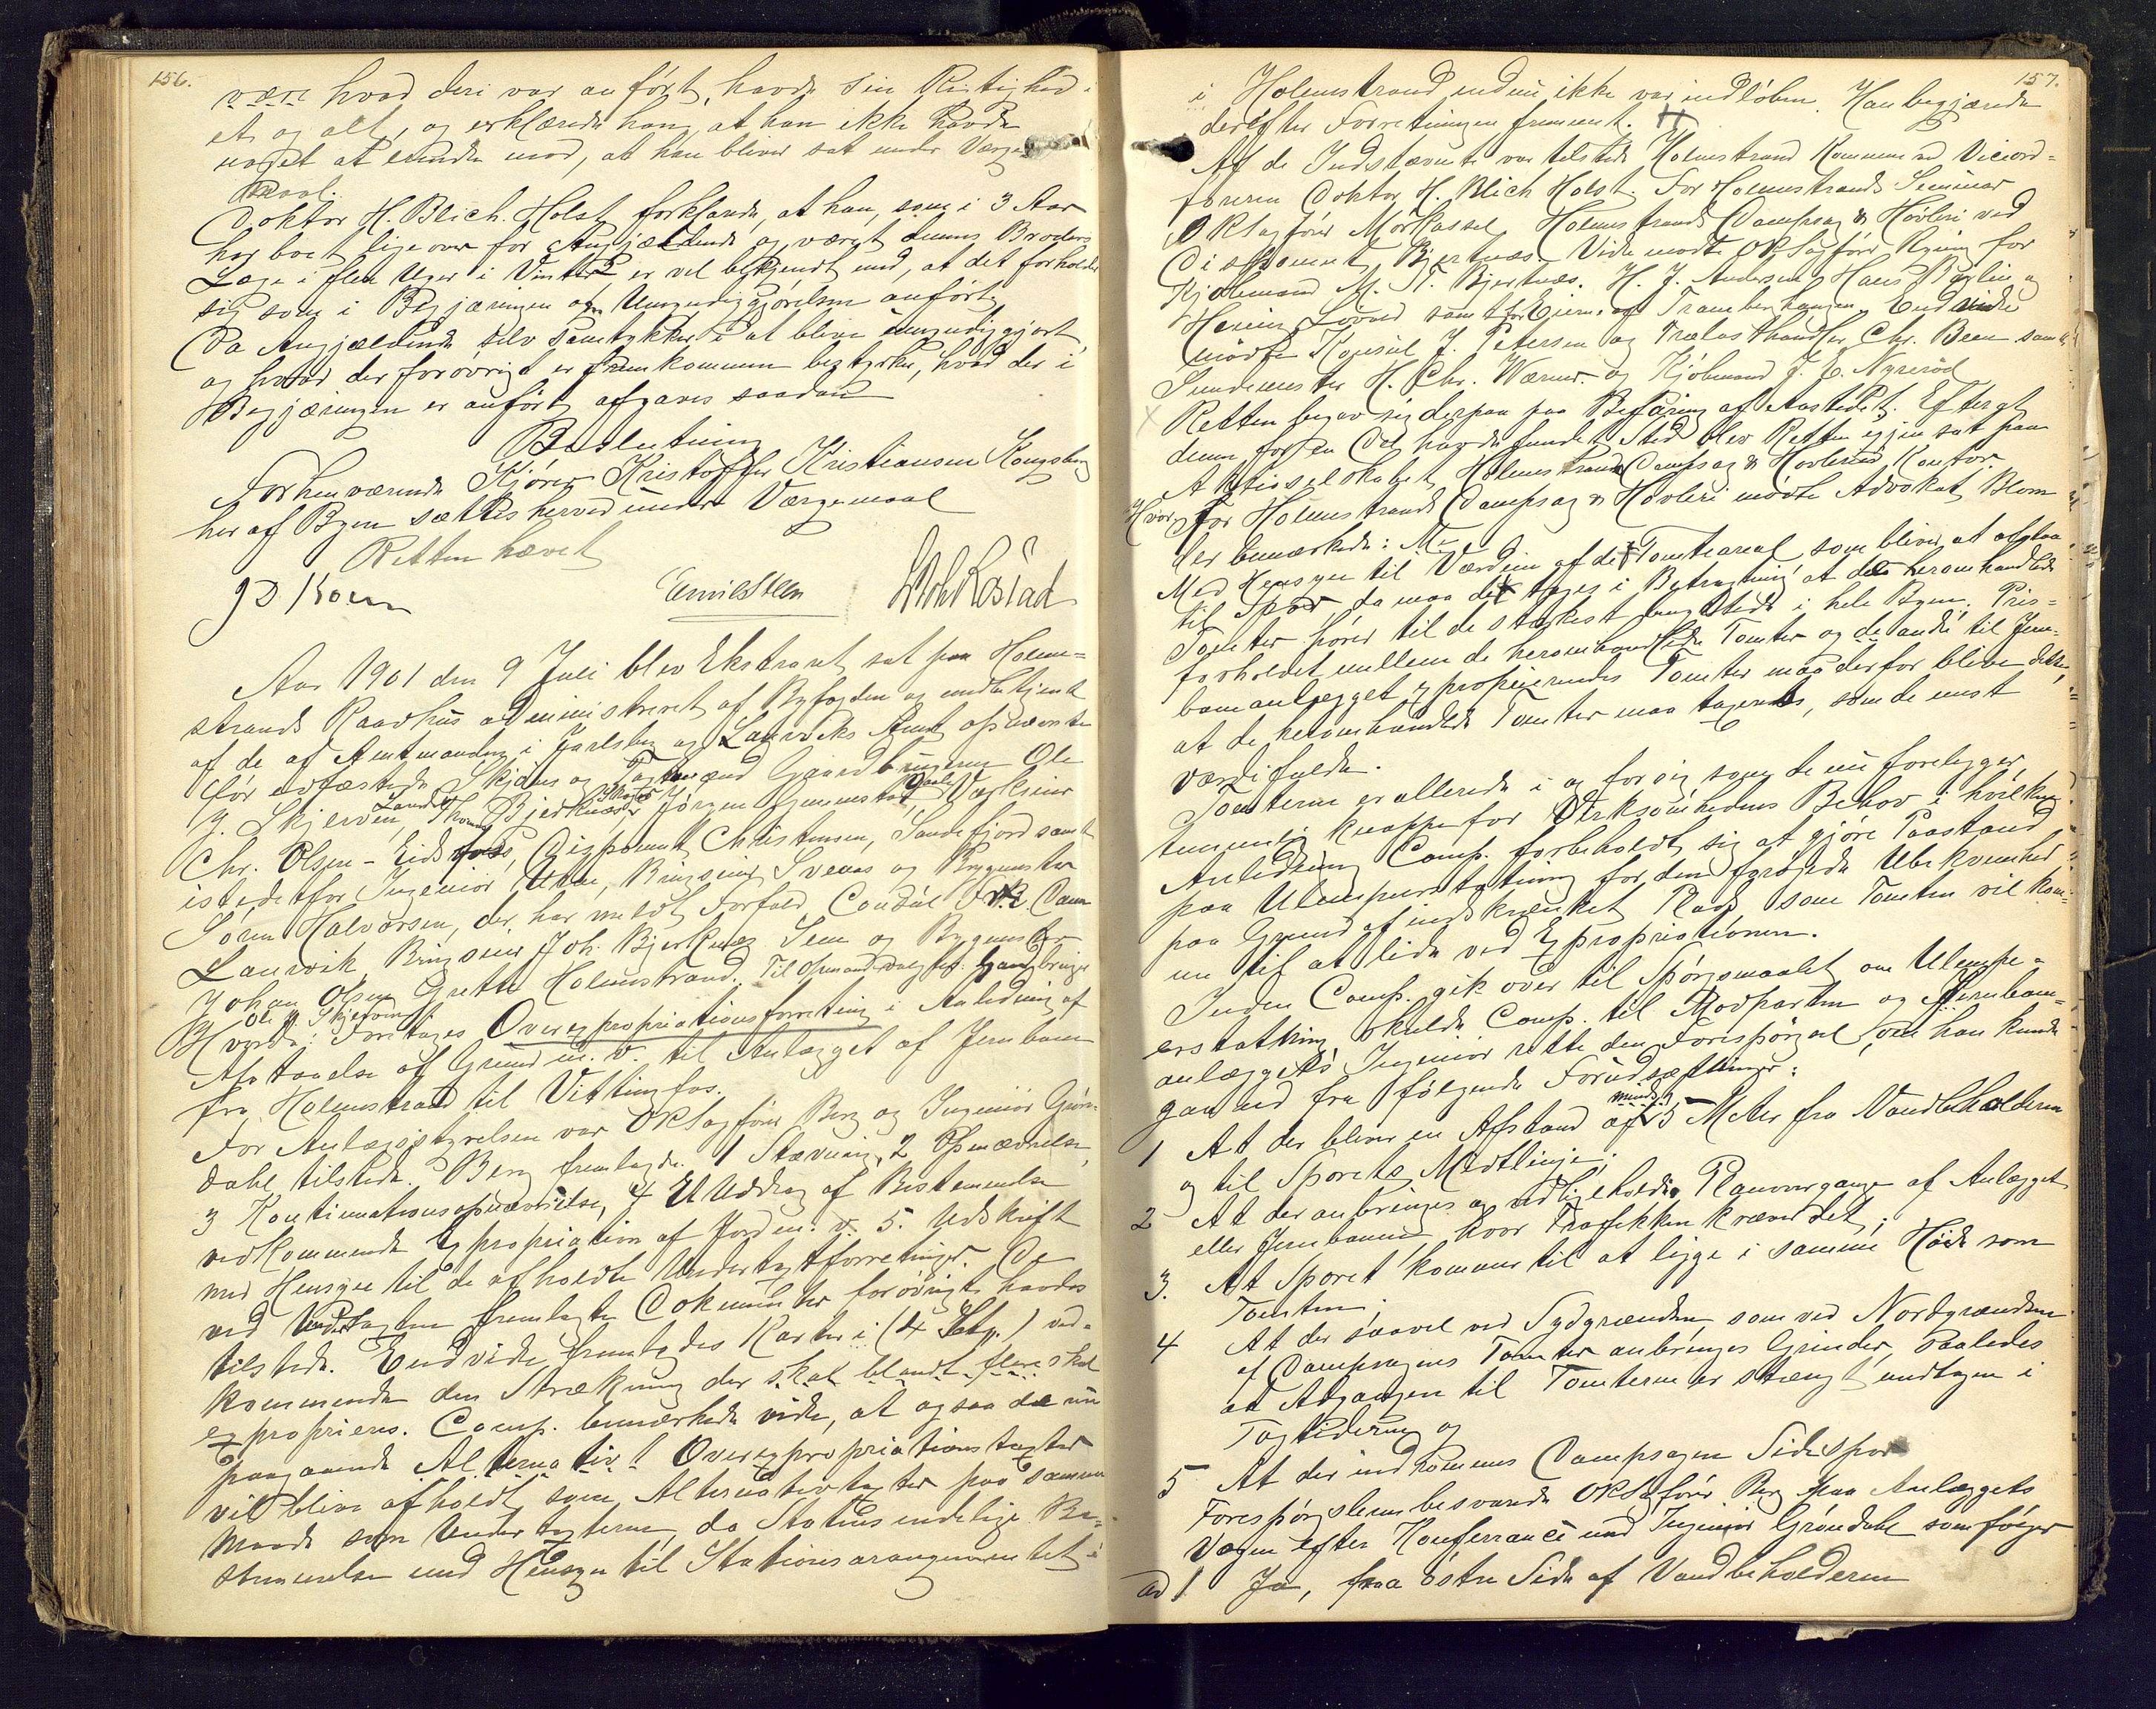 156.
være hvad deri var anført, havde sin Rigtighed i
et og alt, og erklærede han, at han ikke havde
noget at erindre mod, at han bliver sat under Værge-
maal.
Doktor H. Blich Holst forklarede, at han, som i 3 Aar
har boet lige over for Angjældende og været dennes Broders
Læge i flere Uger i Vinter er vel bekjendt med, at det forholder
sig som i Begjæringen om Umyndiggjørelsen anført.
Da Angjældende selv samtykker i at blive umyndiggjort
og hvad der forøvrigt er fremkommen bestyrker, hvad der i
Begjæringen er anført afgaves saadan
Beslutning
Forhenværende Kjører Kristoffer Kristiansen Kongsberg
her af Byen sættes herved under Værgemaal
Retten hævet
Emil Steen
Aar 1901 den 9 Juli blev Ekstraret sat paa Holme-
strands Raadhus administreret af Byfogden og medbetjent
af de af Amtmanden i Jarlsberg og Laurviks Amt opnævnte
før edfæstede Skjøns og Takstmænd Gaardbrugerne Ole
J. Skjerven, Sande, Thomas Bjerknæs, Jørgen Gunnestad,
Chr. Olsen - Eidsfoss, Disponent Christensen, Sandefjord samt
istedetfor Ingeniør Utne, Brugseier Svenas og Bygmester
Søren Halvorsen, der har meldt Forfald Consul O. R. Dann
Laurvik, Brugseier Joh. Bjerknæs Sem og Bygmester
Johan Olsen Grette Holmestrand. Til Opmand valgtes Gaardbruger
Ole J. Skjerven
Hvorda: Foretoges Overexpropriationsforretning i Anledning af
Afstaaelse af Grund m. v. til Anlægget af Jernbane
fra Holmestrand til Vittingfos.
For Anlægsstyrelsen var ORSagfører Berg og Ingeniør Grøn-
dahl tilstede. Berg fremlagde 1 Stævning, 2 Opnævnelse,
3 Kontinuationsopnævnelse, 4 Et Uddrag af Bestemmelse
vedkommende Expropriation af Jorden. 5. Udskrift
med Hensyn til de afholdte Undertaxtforretninger. De
ved Undertaxten fremlagte Dokumenter forøvrigt havdes
tilstede. Endvidere fremlagdes Karter i (4 Sty.) ved-
kommende den Strækning der skal blandt flere skal
exproprieres. Comp. bemærkede videre, at ogsaa de nu
paagaaende Alternativ! Overexpropriationstaxter
vil blive afholdt som Alternativtaxter paa samme
Maade som Undertaxterne, da Statens endelige Be-
stemmelse med Hensyn til Stationsarangementet
157.
i Holmestrand endnu ikke var indløben. Han begjærede
derefter Forretningen fremmet.
Af de Indstævnte var tilstede Holmestrand Kommune ved Viceord-
føreren Doktor H. Blich Holst. For Holmestrands Seminar
OR Sagfører Mørkassel, Holmestrands Dampsag & Høvleri ved
Disponent Bjertnæs. Videre mødte ORSagfører Ryning for
Kjøbmand M. T. Bjertnæs. H. J. Andersen, Hans Berlin og
Henrik Løvold samt for Eierne af Tranberghaugen. Endvidere
mødte Konsul J. Petersen og Trælasthandler Chr. Been samt
Snedkermester H. Chr. Warner og Kjøbmand J. C. Nyrerød
Retten begav sig derpaa paa Befaring af Aastedet. Efterat
denne for en Del havde fundet Sted blev Retten igjen sat paa
Aktieselskabet Holmestrands Dampsag & Høvleris Kontor.
Hvor For Holmestrands Dampsag & Høvleri mødte Advokat Blom
der bemærkede:
Med Hensyn til Værdien af det Tomteareal som bliver at afstaa
til Spor, da maa det tages i Betragtning at de heromhandlede
Tomter hører til de stærkest benyttede i hele Byen. Pris-
forholdet mellem de heromhandlede Tomter og de andre til Jern-
baneanlægget exproprierendes Tomter maa derfor blive dette,
at de heromhandlede Tomter maa taxeres, som de mest
værdifulde.
Tomterne er allerede i og for sig som de nu foreligger
temmelig knappe for Virksomhedens Behov i hvilken
Anledning Comp. forbeholdt sig at gjøre Paastand
paa Ulempeerstatning for den forøgede Ubekvemhed
paa Grund af indskrænket Plads som Tomten vil kom-
me til at lide ved Expropriationen.
Inden Comp. gik over til Spørgsmaalet om Ulempe-
erstatning, skulde Comp. til Modparten og Jernbane-
anlæggets Ingeniør rette den Forespørgsel, om han kunde
gaa ud fra følgende Forudsætninger:
1 At der bliver en Afstand af mindst 5 Meter fra Vandbeholderen
og til Sporets Midtlinje;
2 At der anbringes og vedligeholdes Planovergange af Anlægget
eller Jernbanen, hvor Trafikken kræver det;
3. At Sporet kommer til at ligge i samme Høide som
Tomten;
4 At der saavel ved Sydgrændsen som ved Nordgrændsen
af Dampsagens Tomter anbringes Grinder, saaledes
at Adgangen til Tomterne er stængt undtagen i
Togtiderne og
5 At der indrømmes Dampsagen Sidespor
Forespørgslerne besvarede ORSagfører Berg paa Anlæggets
Vegne efter Konferrance med Ingeniør Grøndahl som følger
ad 1 Ja, fra østre Side af Vandbeholderen